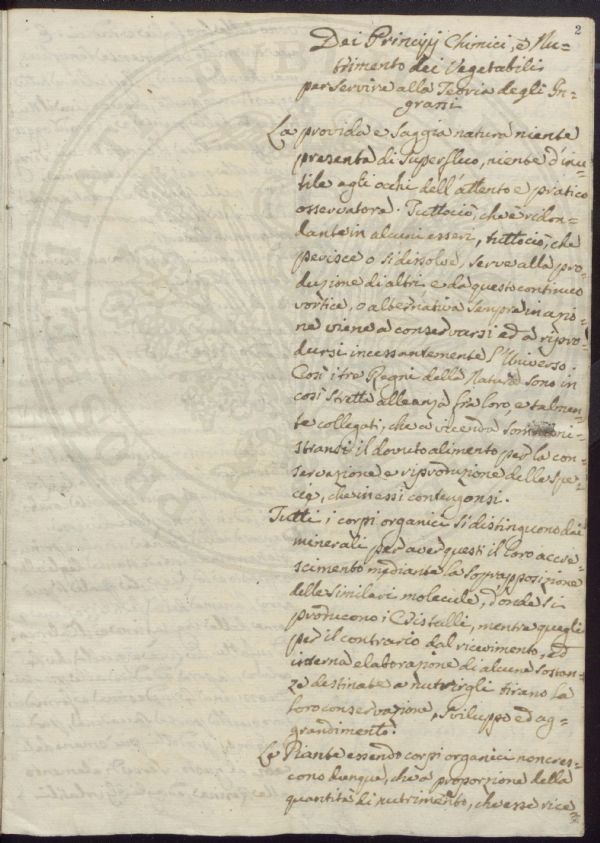 2
Dei Principj Chimici, e Nu-
trimento dei Vegetabili
per servire alla Teoria degli In-
grassi
La provida e saggia natura niente
presenta di superfluo, niente d'inu-
tile agli occhi dell'attento e pratico
osservatore. Tuttociò, che è ridon-
dante in alcuni esseri, tuttociò, che
perisce o si dissolve, serve alla pro-
duzione di altri e da questo continuo
vortice, o alternativa sempre in azio-
ne viene a conservarsi ed a ripro-
dursi incessantemente l'Universo.
Così i tre Regni della Natura sono in
così stretta alleanza fra loro, e talmen-
te collegati, che a vicenda sommini-
stransi il dovuto alimento per la con-
servazione e riproduzione delle spe-
cie, che in essi contengonsi.
Tutti i corpi organici si distinguono dai
minerali per aver questi il loro accre-
scimento mediante la soprapposizione
delle similari molecule, d'onde si
producono i Cristalli, mentre quegli
per il contrario dal ricevimento, ed
interna elaborazione di alcune sostan-
ze destinate a nutrirgli tirano la
loro conservazione, sviluppo ed ag-
grandimento.
Le Piante essendo corpi organici non cres-
cono dunque, che a proporzione della
quantità di nutrimento, che esse rice